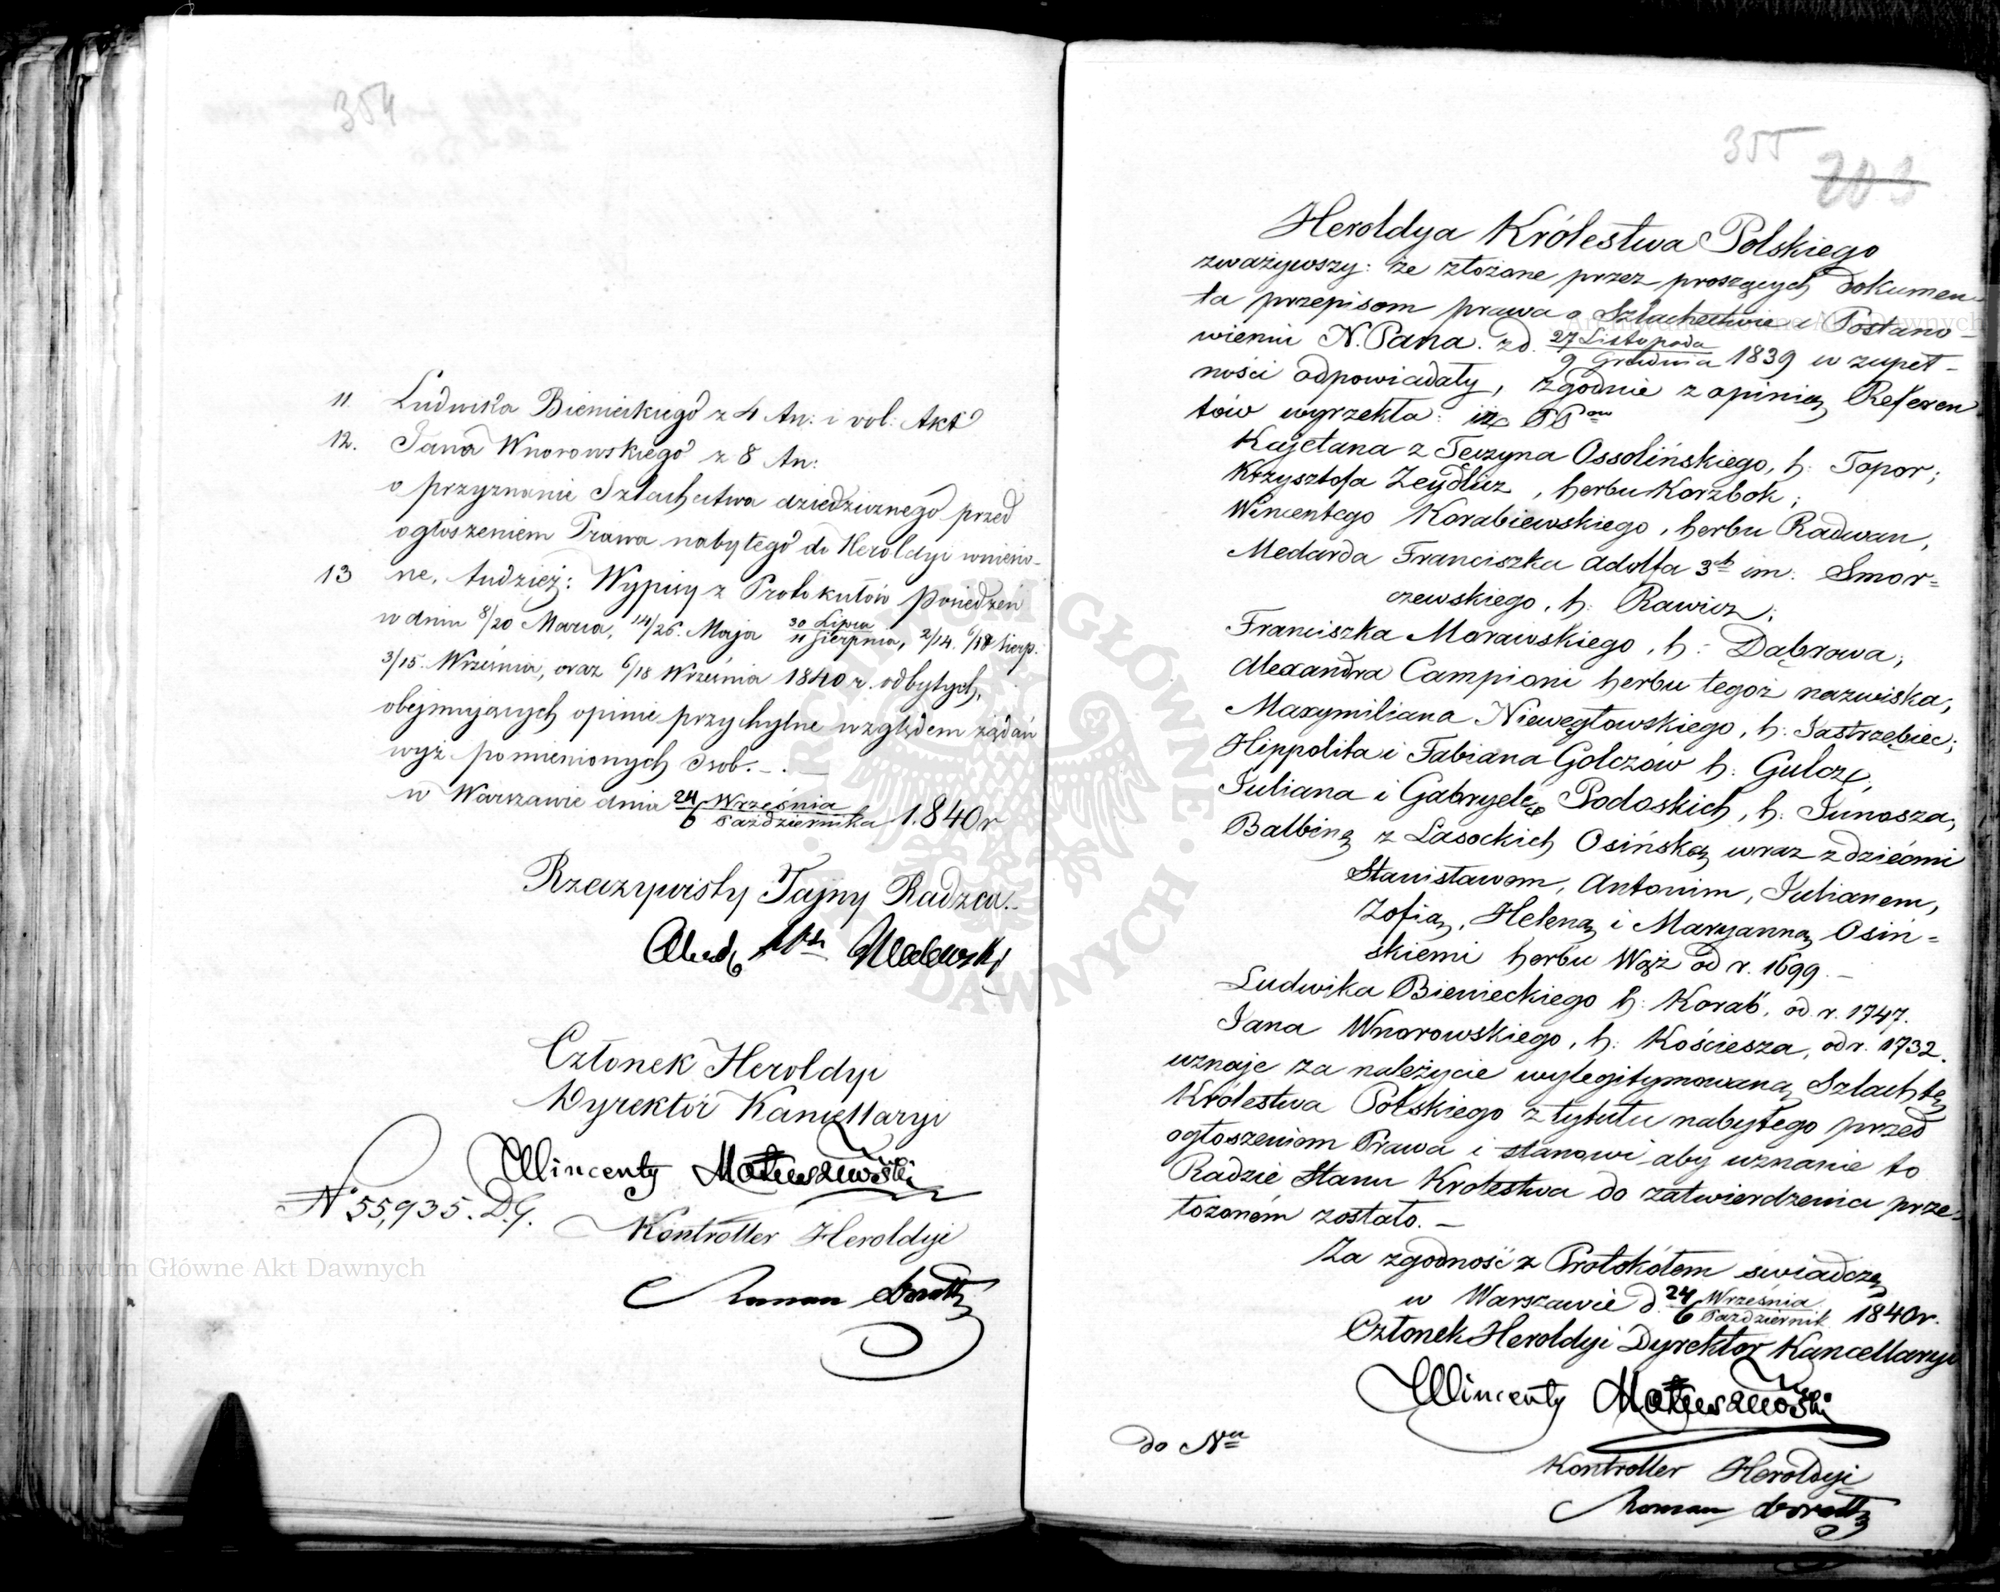 354
11. Ludwika Bienieckiego z 4 An: i vol: Akt
12. Jana Wnorowskiego z 8 An:
o przyznanie Szlachectwa dziedzicznego przed
ogłoszeniem Prawa nabytego do Heroldyi wniesio-
13 ne, tudzież: Wypisy z Protokułów Posiedzeń
w dniu 8/20 Marca, 14/26. Maja 30 Lipca/11 Sierpnia, 2/14. 6/18 Sierp.
3/15. Września, oraz 6/18 Września 1840 r. odbytych,
obejmujących opinie przychylne względem żądań
wyż pomienionych Osób. _ . _
w Warszawie dnia 24 Września/6 Października 1.840 r
Rzeczywisty Tajny Radzca._
Członek Heroldyi
Dyrektór Kancellaryi
Wincenty Matuszewski
N 55,935. D.G.
Kontroller Heroldyi
Roman
355
203
Heroldya Królestwa Polskiego
zważywszy: że złożone przez proszących dokumen
ta przepisom prawa o Szlachectwie i Postano-
wieniu N. Pana. z d. 27 Listopada/9 Grudnia 1839 w zupeł-
ności odpowiadały, zgodnie z opinią Referen
tów wyrzekła: iż PP
Kajetana z Tęczyna Ossolińskiego, h: Topor;
Krzysztofa Zeydlicz, herbu Korzbok;
Wincentego Korabiewskiego, herbu Radwan,
Medarda Franciszka Adolfa 3ch im: Smor=
czewskiego, h: Rawicz;
Franciszka Morawskiego, h: Dąbrowa;
Alexandra Campioni herbu tegoż nazwiska;
Maxymiliana Niewęgłowskiego, h: Jastrzębiec;
Hippolita i Fabiana Golczów h: Gulcz,
Juliana i Gabryelę Podoskich, h: Junosza;
Balbinę z Lasockich Osińską wraz z dziećmi
Stanisławem, Antonim, Julianem,
Zofią, Heleną i Maryanną Osiń=
skiemi herbu Wąż od r. 1699. _
Ludwika Bienieckiego h: Korab, od r. 1747.
Jana Wnorowskiego, h: Kościesza, od r. 1732.
uznaje za należycie wylegitymowaną Szlachtę
Królestwa Polskiego z tytułu nabytego przed
ogłoszeniem Prawa i stanowi aby uznanie to
Radzie Stanu Królestwa do zatwierdzenia prze=
łożoném zostało. _
Za zgodność z Protokółem świadczę
w Warszawie d. 24 Września/6 Październik. 1840 r.
Członek Heroldyi Dyrektor Kancellaryi
Wincenty Matuszewski
do N
Kontroller Heroldyi
Roman
Archiwum Główne Akt Dawnych
Archiwum Główne Akt Dawnych
ARCHIWUM GŁÓWNE AKT DAWNYCH